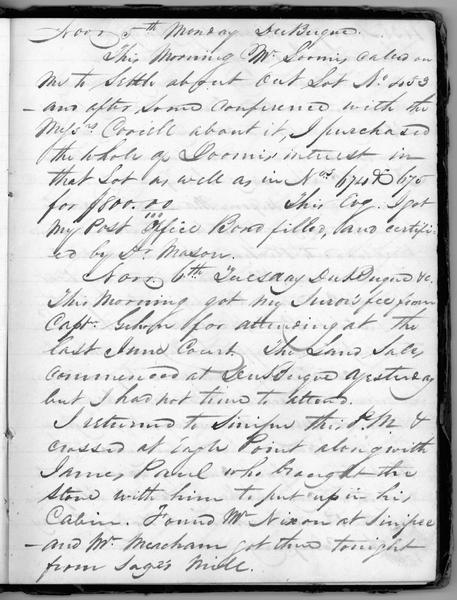 Novr 5th Monday DuBuque.
This Morning Mr Loomis called on
Me to Settle about Out Lot No 453
- and after some conference with the
Messrs Coriell about it, I purchased
the whole of Loomis interest in
that Lot as well as in Nos 674 & 675
for $800.00 This Evg I got
My Post Office Bond filled, and certifi-
ed by Dr Mason.
Novr 6th Tuesday DuBuque &c.
This Morning got my Jurors fee from
Capt. for attending at the
last June Court. The Land Sales
commenced at DuBuque yesterday
but I had not time to attend.
I returned to Sinipee this P.M. &
crossed at Eagle Point along with
James Paul who brought the
stove with him to put up in his
Cabin. Found Mr Nixon at Sinipee
- and Mr. Meacham got there tonight
from Sage's Mill.